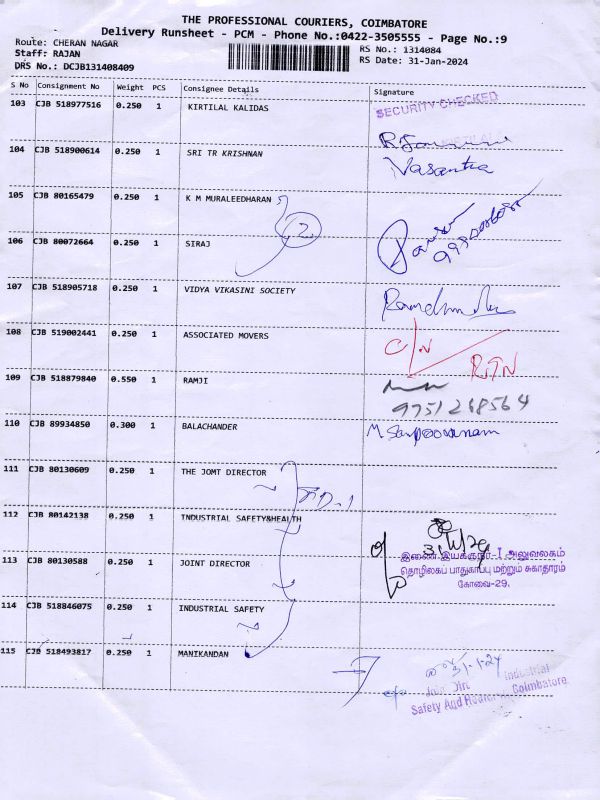 THE PROFESSIONAL COURIERS, COIMBATORE
Delivery Runsheet - PCM - Phone No.:0422-3505555 - Page No.:9
Route: CHERAN NAGAR
Staff: RAJAN
DRS No.: DCJB131408409
RS No.: 1314084
RS Date: 31-Jan-2024
S No Consignment No Weight PCS Consignee Details Signature
103 CJB 518977516 0.250 1 KIRTILAL KALIDAS
SECURITY CHECKED
104 CJB 518900614 0.250 1 SRI TR KRISHNAN
Vasantha
105 CJB 80165479 0.250 1 K M MURALEEDHARAN
2
106 CJB 80072664 0.250 1 SIRAJ
107 CJB 518905718 0.250 1 VIDYA VIKASINI SOCIETY
108 CJB 519002441 0.250 1 ASSOCIATED MOVERS
C/N
RTN
109 CJB 518879840 0.550 1 RAMJI
9751268564
110 CJB 89934850 0.300 1 BALACHANDER
M Sampooranam
111 CJB 80130609 0.250 1 THE JOMT DIRECTOR
112 CJB 80142138 0.250 1 INDUSTRIAL SAFETY&HEALTH
31/1/24
இணை இயக்குநர்-I அலுவலகம்
113 CJB 80130588 0.250 1 JOINT DIRECTOR
தொழிலகப் பாதுகாப்பு மற்றும் சுகாதாரம்
கோவை-29.
114 CJB 518846075 0.250 1 INDUSTRIAL SAFETY
115 CJB 518493817 0.250 1 MANIKANDAN
31-1-24
Industrial
Safety And Health Coimbatore